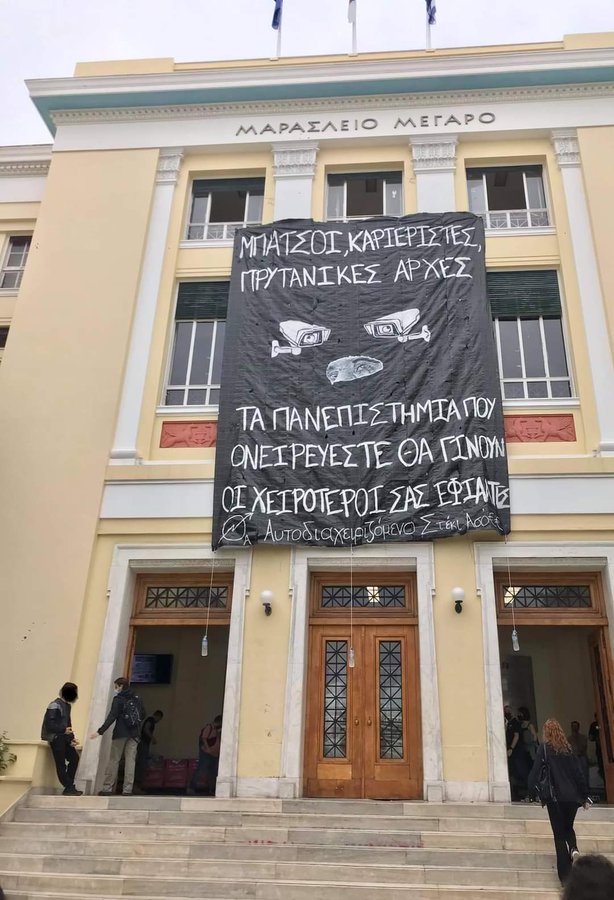 ΜΑΡΑΣΛΕΙΟ ΜΕΓΑΡΟ
ΜΠΑΤΣΟΙ, ΚΑΡΙΕΡΙΣΤΕΣ,
ΠΡΥΤΑΝΙΚΕΣ ΑΡΧΕΣ
ΤΑ ΠΑΝΕΠΙΣΤΗΜΙΑ ΠΟΥ
ΟΝΕΙΡΕΥΕΣΤΕ ΘΑ ΓΙΝΟΥΝ
ΟΙ ΧΕΙΡΟΤΕΡΟΙ ΣΑΣ ΕΦΙΑΛΤΕΣ
Αυτοδιαχειριζόμενο Στέκι